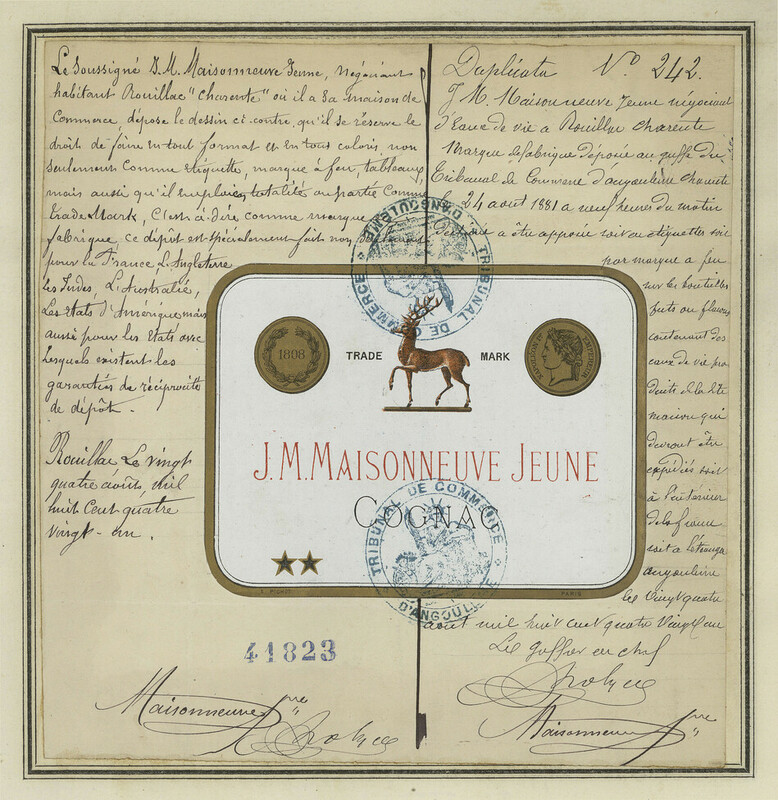 Le Soussigné J. M. Maisonneuve Jeune, négociant
habitant Rouillac "Charente" où il a sa maison de
Commerce dépose le dessin ci-contre, qu'il se réserve le
droit de faire en tout format et en tous coloris, non
seulement comme étiquette, marque à feu, tableaux
mais aussi qu'il emploie en totalité ou partie comme
trade Mark, C'est-à-dire comme marque
fabrique, ce dépôt est spécialement fait non seulement
pour la France L'Angleterre
les Indes, L'Australie,
Les états d'Amérique mais
aussi pour les états avec
lesquels existent les
garanties de réciprocité
de dépôt.
Rouillac Le vingt
quatre août mil
huit Cent quatre
vingt-un.
41823
Maisonneuve Jne
Duplicata No 242.
J M. Maisonneuve Jeune négociant
d'Eaux de vie a Rouillac charente
Marque de fabrique déposée au greffe du
Tribunal de Commerce d'angoulême charente
Le 24 aout 1881 a neuf heures du matin
a être apposée soit en étiquettes soit
par marque a feu
sur les bouteilles
futs ou flacons
contenant des
eaux de vie pro
duits de la dte
maison qui
devront être
expédiés soit
à l'intérieur
de la france
soit a l'étranger
angoulême
le vingt quatre
aout mil huit cent quatre vingt un
Le greffier en chef
Maisonneuve Jne
TRIBUNAL DE COMMERCE
D'ANGOULEME
1808
TRADE MARK
NAPOLEON EMPEREUR
J. M. MAISONNEUVE JEUNE
COGNAC
TRIBUNAL DE COMMERCE
D'ANGOULEME
PARIS